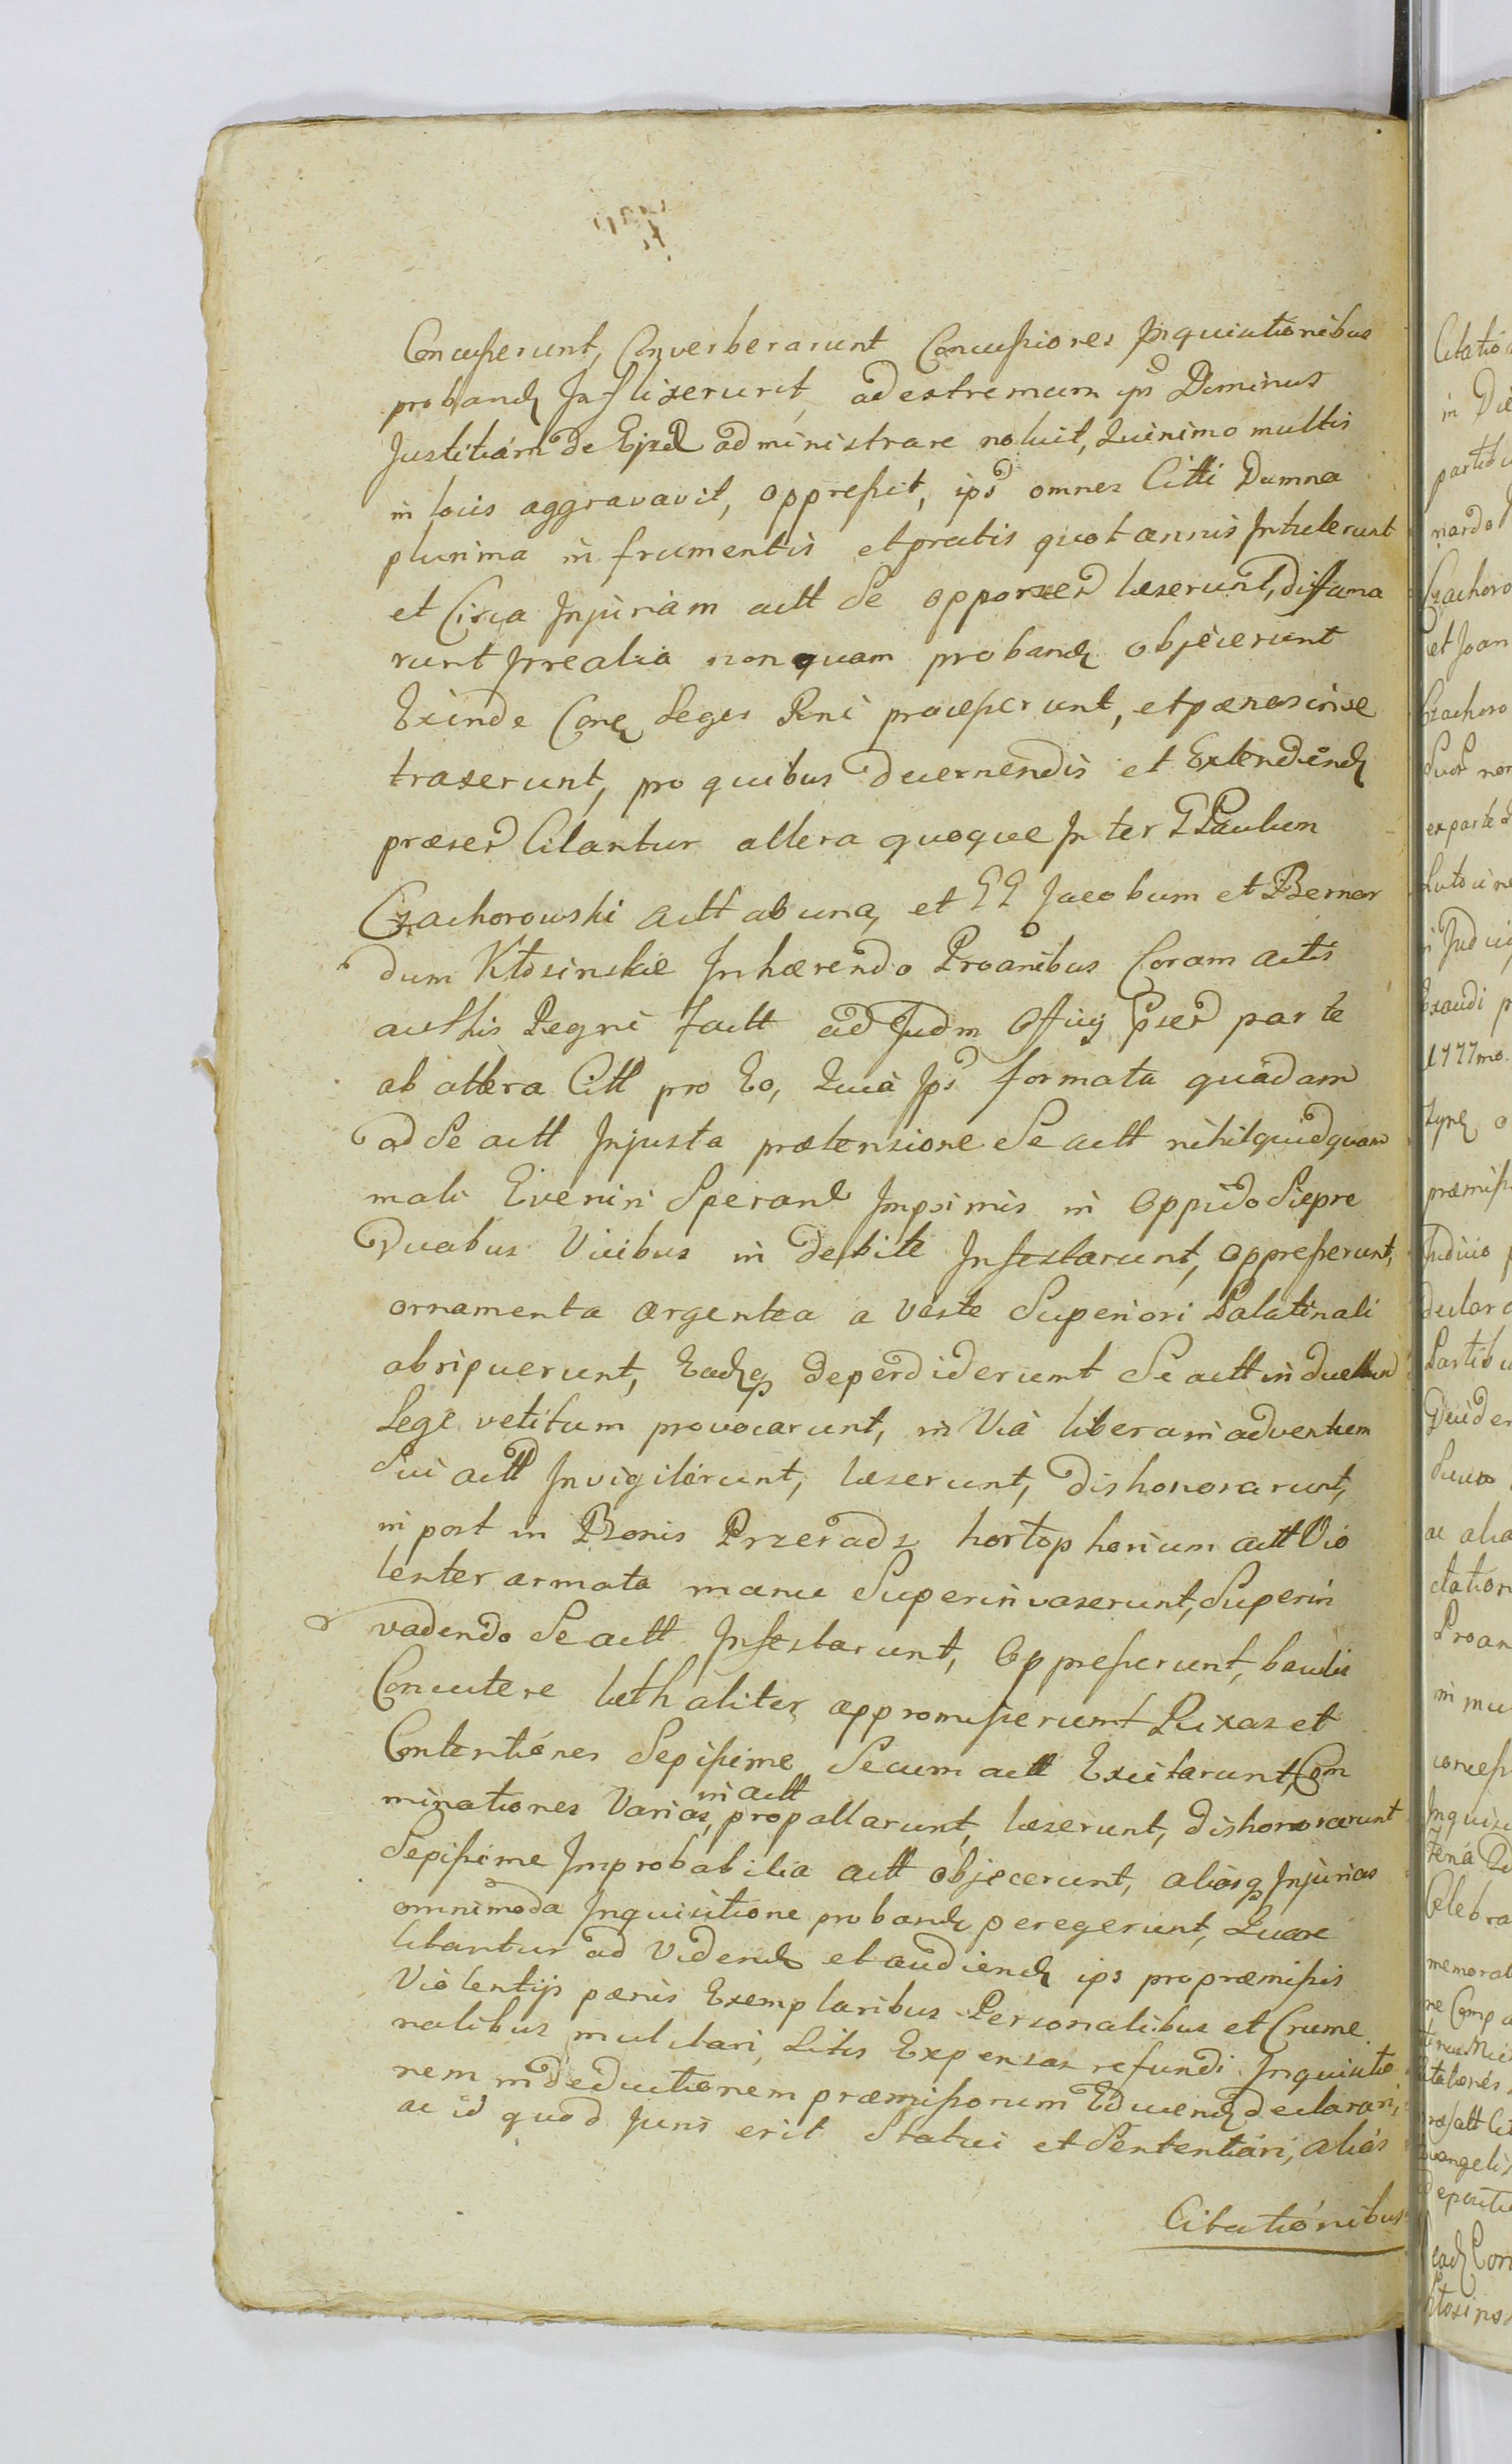 Concusserunt, Converberarunt Concussiones Inquisitionibus
proband Inflixerunt, ad extremam ips Dominus
Justitiam de Ejsd administrare noluit, Quinimo multis
in locis aggravavit, oppressit, ips omnes Citti Damna
plurima in frumentis et pratis quotannis Intulerunt
et Circa Injuriam actt Se opponend læserunt, difama
runt Irrealia nonquam proband objecerunt
Exinde Leges Rni processerunt, et pænas in se
traxerunt, pro quibus decernendis et Extendend
præsed Citantur altera quoque Inter G Paulum
Czachorowski actt ab una, et GG Jacobum et Bernar
dum Kłosinskie Inhærendo Proanibus Coram actis
authis Regni factt ad Judm Officij Psed parte
ab altera Citt pro Eo, Quia Ips formata quadam
ad Se actt Injusta prætensione Se actt nihil quidquam
mali Eveniri Sperant Imprimis in Oppido Siepre
Duabus Vicibus in debite Infestarunt, oppresserunt,
ornamenta argentea a veste Superiori Palatinali
abripuerunt, Eadq deperdiderunt Se actt in duellum
Lege vetitum provocarunt, in Via libera in adventum
Sui actt Invigilarunt, læserunt, dishonorarunt,
in post in Bonis Przeradz hortophorium actt Vio
lenter armata manu Superinvaserunt, Superin
vadendo Se actt Infestarunt, Oppresserunt, baculis
Concutere lethaliter appromisserunt Rixas et
Contentiones Sepissime Secum actt Excitarunt, Com
minationes Varias, in actt propallarunt, læserunt, dishonorarunt
Sepissime Improbabilia actt objecerunt, aliasq Injurias
omnimoda Inquisitione proband peregerunt, Quare
Citantur ad Videnda et audiend ips pro præmissis
Violentijs pænis Exemplaribus Personalibus et Crume
nalibus mulctari, Litis Expensas refundi Inquisitio
nem in deductionem præmissorum Educend declarari,
ac id quod Juris erit Statui et Sententiari, alias
Citationibus
Citatio
in Die
partib
nardo
Czachoro
et Joan
Czachoro
ex parte
1777mo
præmiss
Judicio
declara
Partibu
ac alia
Proan
in mu
concess
Inquisi
Celebra
memorat